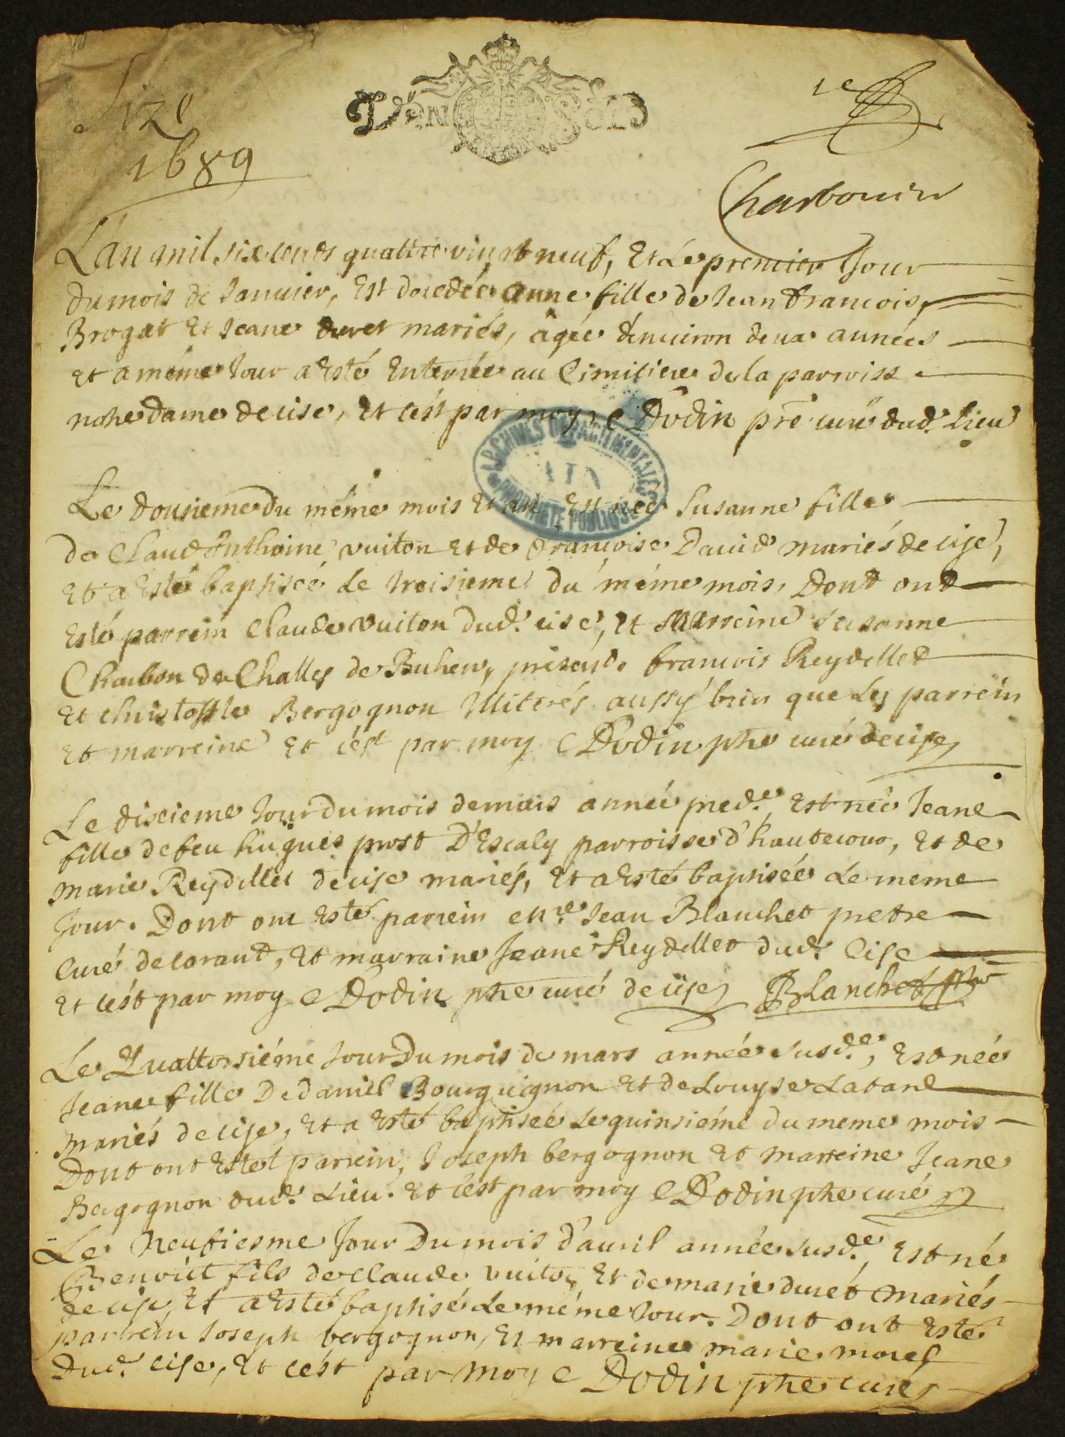 1689
Charbonier
L'an mil six cents quattre vingt neuf, Et Le premier Jour
du mois de Januier, Est decedée anne fille de Jean francois
Brogat Et Jeane duret mariés, âgée d'enuiron deux années
et a méme Jour a Esté Enterrée au Cimitiere de la parroisse
notre dame de cise, Et c'est par moy C Dodin pre curé dud. Lieu
ARCHIVES DEPARTEMENTALES
AIN
PROPRIETE PUBLIQUE
Le dousieme du méme mois Et an Est née Susanne fille
de Claud Anthoine vuiton Et de francoise Dauid mariés de cise,
Et a Esté baptisée Le troisieme du méme mois, Dont ont
Esté parrein Claude vuiton dud. cise, Et Marreine Susanne
Charbon de Challes de Buhen, présent francois Reydellet
Et christofle Bergognon Illiterés aussy bien que Les parrein
Et marreine Et c'est par moy C Dodin ptre curé de cise
Le dixieme Jour du mois de mars année pred.e Est née Jeane
fille de feu hugues prost D'Escaly parroisse d'hautecour, Et de
Marie Reydellet de cise mariés, Et a Esté baptisée Le meme
Jour. Dont ont Esté parrein Jean Blanchet pretre
Curé de corant, Et marraine Jeane Reydellet dud. Cise
Et c'est par moy C Dodin ptre curé de cise Blanchet ptre
Le Quattorsiéme Jour Du mois de mars année susd.e, Est née
Jeane fille De daniel Bourguignon Et de Louyse Labane
mariés de cise, Et a Esté baptisée Le quinsiéme du meme mois
Dont ont Esté parrein, Joseph bergognon Et marreine Jeane
Bergognon dud. Lieu. Et c'est par moy C Dodin ptre curé
Le Neufiesme Jour Du mois d'auril année susd.e Est né
Benoict fils de Claude vuiton Et de marie duret Mariés
de cise, Et a Esté baptisé Le méme Jour. Dont ont Esté
parrein Joseph bergognon, Et marreine marie morel
dud. cise, Et c'est par moy C Dodin ptre curé